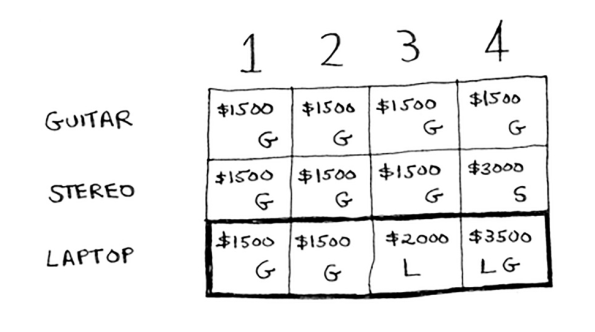 1 2 3 4
GUITAR $1500 G $1500 G $1500 G $1500 G
STEREO $1500 G $1500 G $1500 G $3000 S
LAPTOP $1500 G $1500 G $2000 L $3500 L G